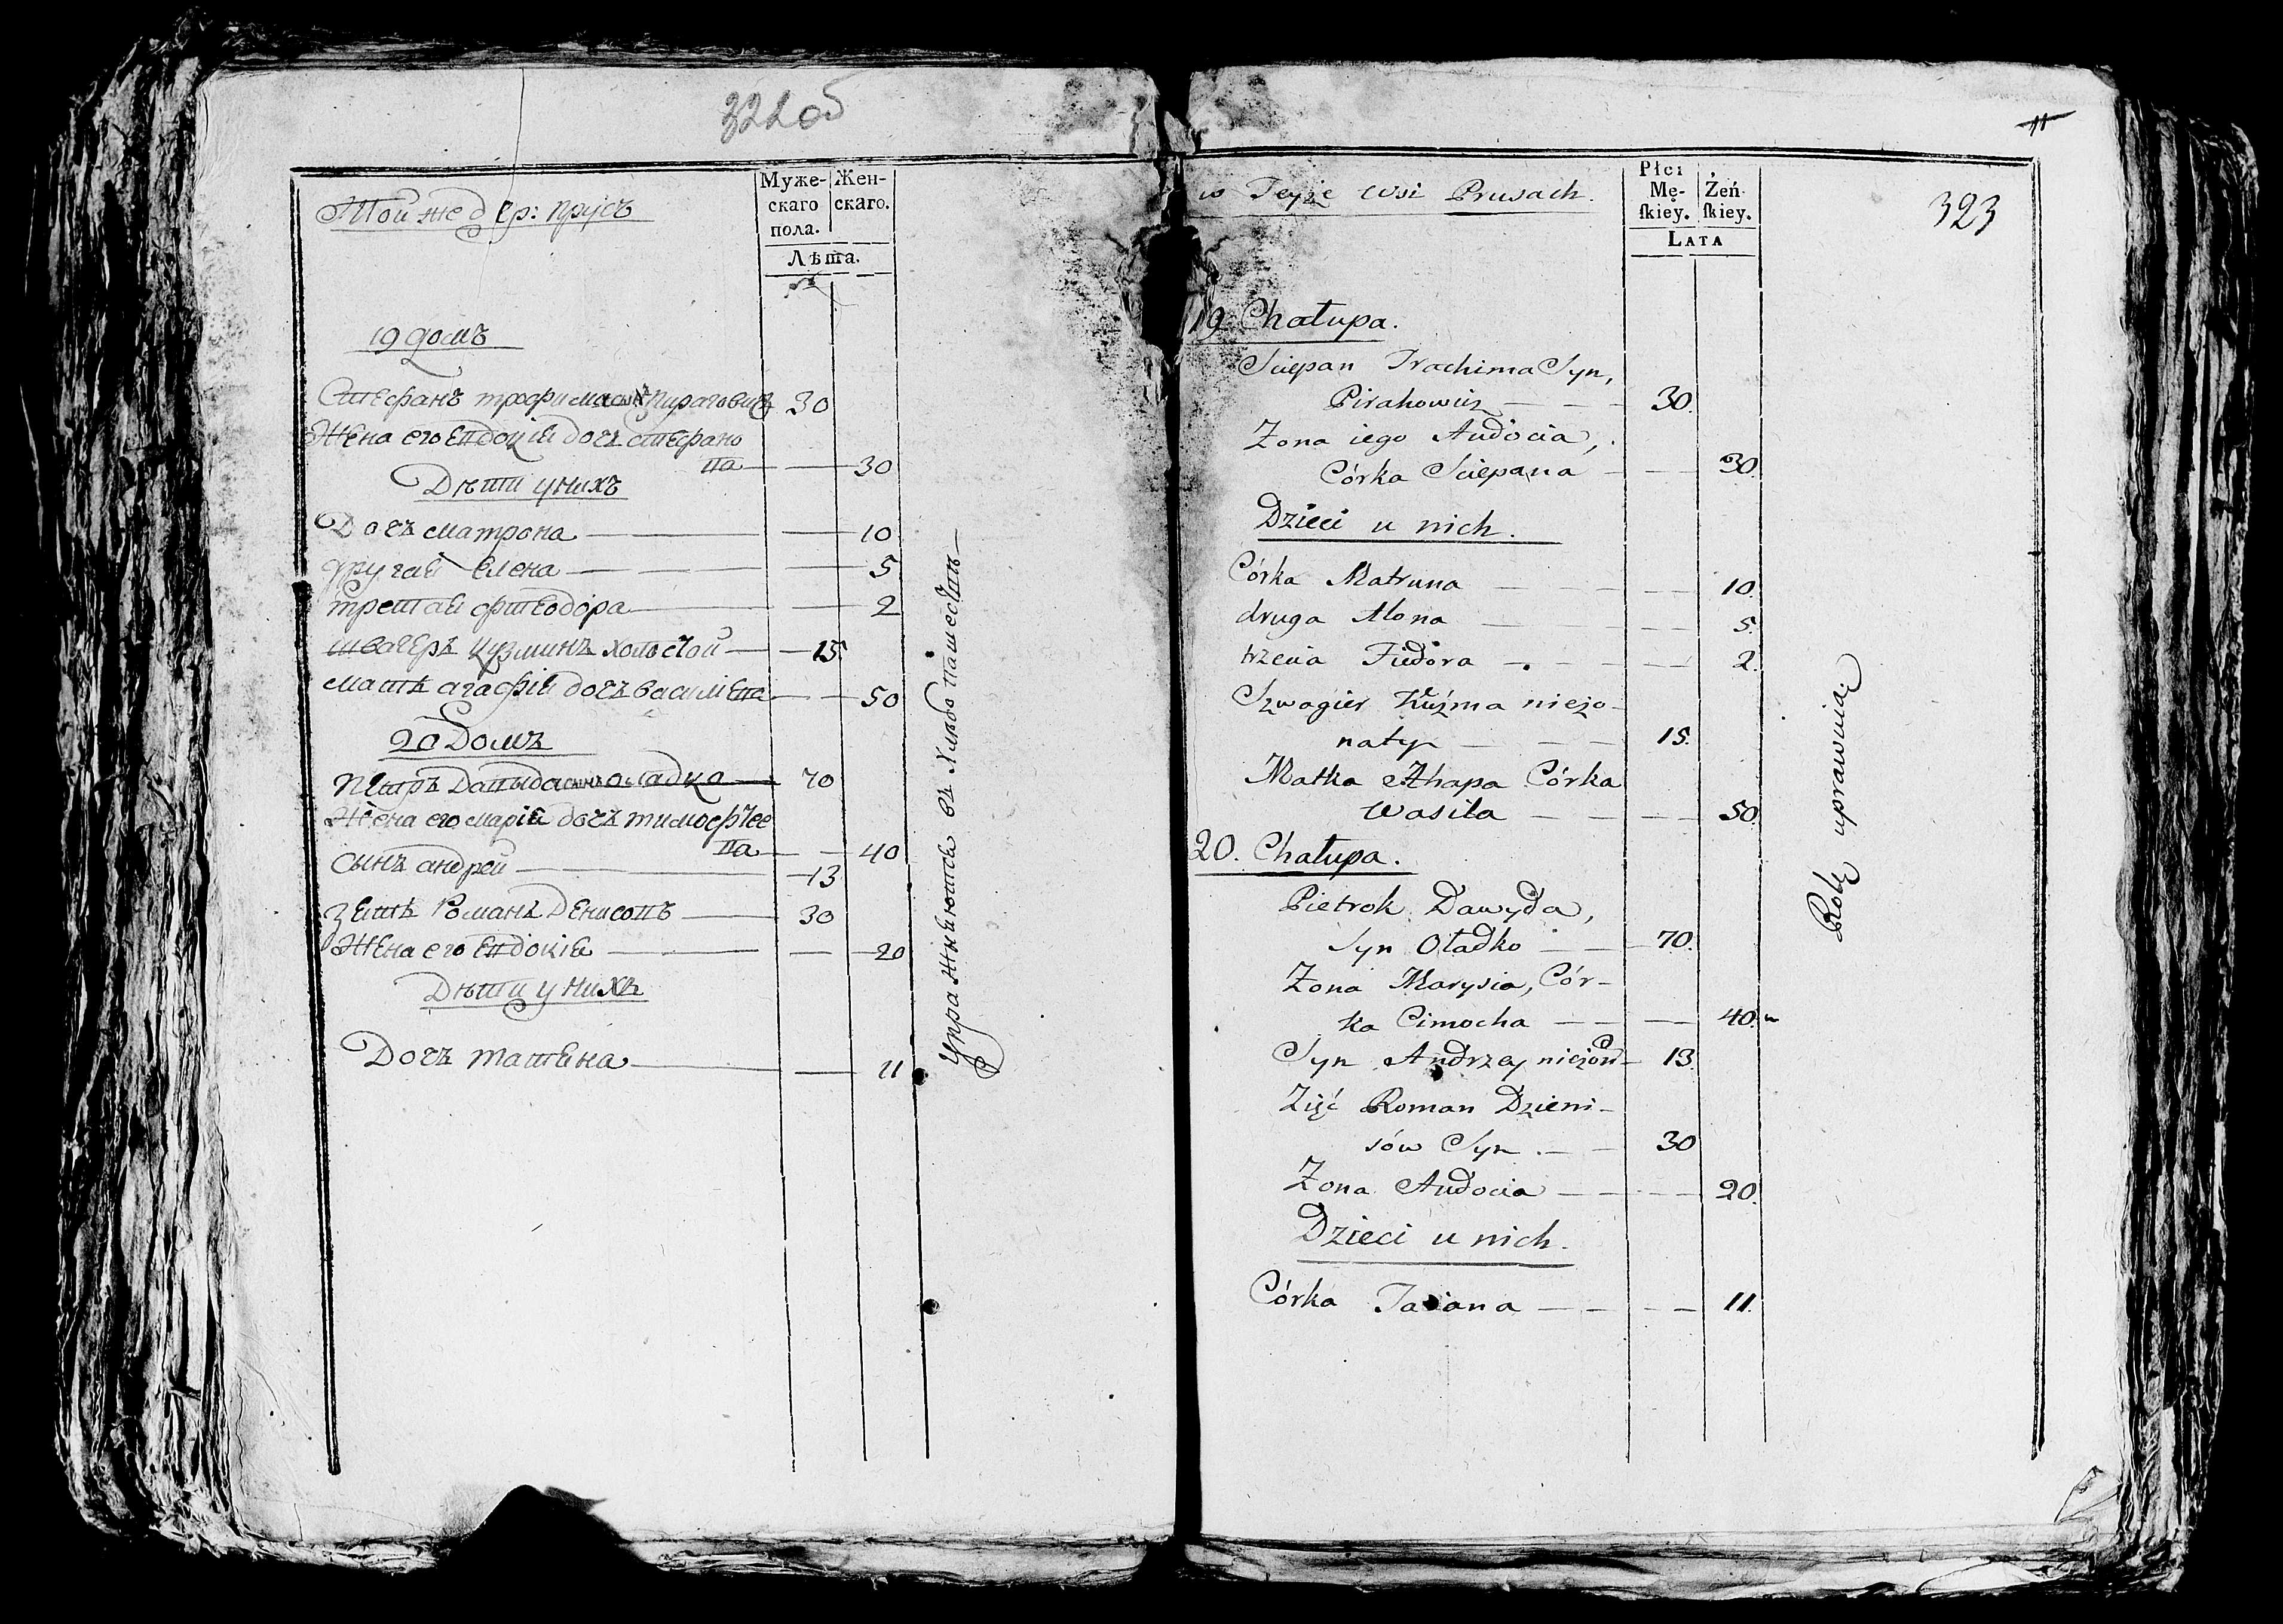 322об
Той же дер: прусъ
Муже- Жен-
скаго скаго.
пола.
Лѣта.
19 домъ
Стефанъ трофима сынъ пираговичъ 30
Жена его евдокія дочь стефано
ва — — 30
Дѣти у нихъ
Дочь матрона — — 10
другая елена — — 5
третая фтеодора — — 2
швагеръ кузминъ холостой — — 15
мать агафія дочь василева — — 50
20 Домъ
Петръ Давыда сынъ оладко — 70
Жена его марія дочь тимофѣе
ва — — 40
сынъ андрей — — 13
зеть Романъ Денисовъ — 30
Жена его евдокія — — 20
Дѣти у нихъ
Дочь татена — — 11
упражняются въ хлѣбопашествѣ —
11
323
w Teyże wsi Prusach.
Płci
Mę- Żeń-
ſkiey. ſkiey.
LATA
19. Chałupa.
Sciepan Trachima Syn,
Pirahowicz — — — 30.
Zona iego Audocia,
Córka Sciepana — — — 30.
Dzieci u nich.
Córka Matruna — — — 10.
druga Alona — — — 5.
trzecia Fiedora — — — 2.
Szwagier Kuźma nieżo-
naty — — — 15.
Matka Ahapa Córka
Wasila — — — 50.
20. Chałupa.
Pietrok Dawyda,
Syn Oładko — — 70.
Zona Marysia, Cór-
ka Cimocha — — — 40.
Syn Andrzey nieżon — 13.
Zięć Roman Dzieni-
sów Syn — — 30
Zona Audocia — — — 20.
Dzieci u nich.
Córka Taciana — — — 11.
Rolę uprawniaią